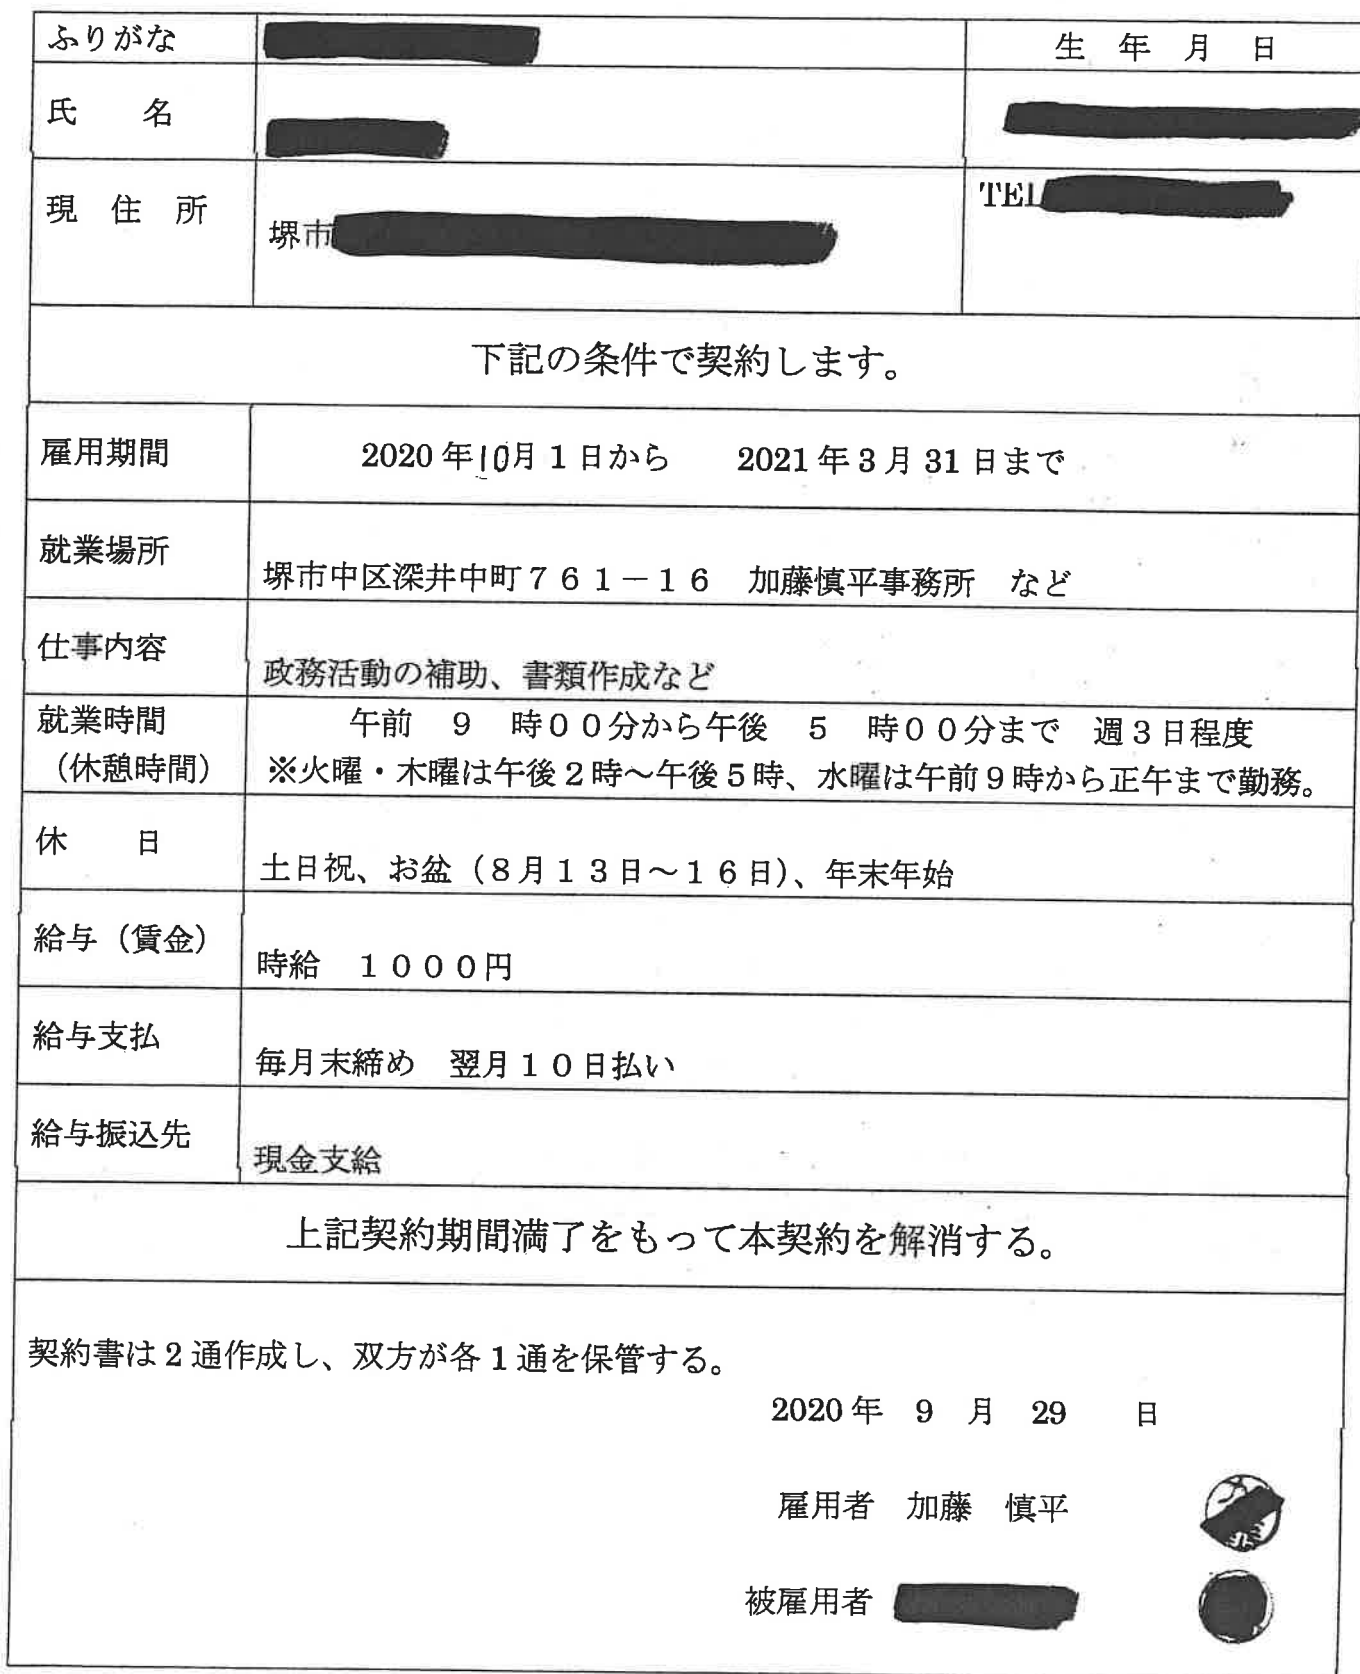 ふりがな
生 年 月 日
氏 名
現 住 所
堺市
TEL
下記の条件で契約します。
雇用期間
2020年10月1日から 2021年3月31日まで
就業場所
堺市中区深井中町761-16 加藤慎平事務所 など
仕事内容
政務活動の補助、書類作成など
就業時間
(休憩時間)
午前 9 時00分から午後 5 時00分まで 週3日程度
※火曜・木曜は午後2時~午後5時、水曜は午前9時から正午まで勤務。
休 日
土日祝、お盆(8月13日~16日)、年末年始
給与(賃金)
時給 1000円
給与支払
毎月末締め 翌月10日払い
給与振込先
現金支給
上記契約期間満了をもって本契約を解消する。
契約書は2通作成し、双方が各1通を保管する。
2020年 9 月 29 日
雇用者 加藤 慎平
被雇用者